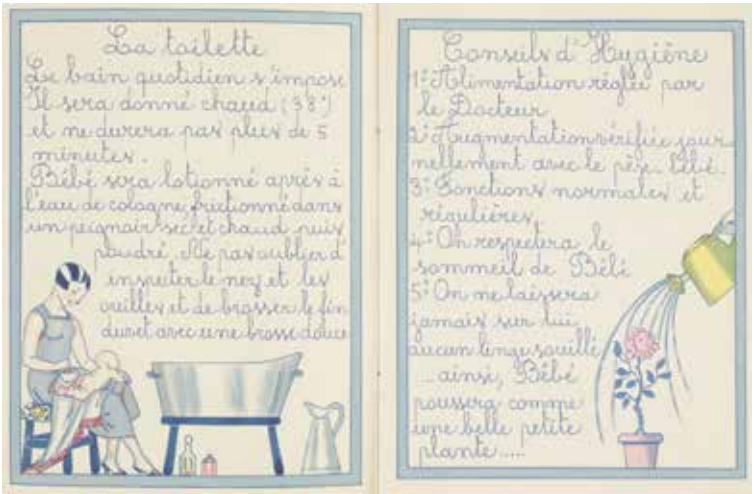 La toilette
Le bain quotidien s'impose
Il sera donné chaud (38°)
et ne durera pas plus de 5
minutes.
Bébé sera lotionné après à
l'eau de cologne, frictionné dans
un peignoir sec et chaud puis
poudré. Ne pas oublier d'
inspecter le nez et les
oreilles et de brosser le fin
duvet avec une brosse douce
Conseils d'Hygiène
1° Alimentation réglée par
le Docteur
2° Augmentation vérifiée jour-
nellement avec le pèse-bébé.
3° Fonctions normales et
régulières
4° On respectera le
sommeil de Bébé
5° On ne laissera
jamais sur lui
aucun linge souillé
... ainsi, Bébé
poussera comme
une belle petite
plante.....